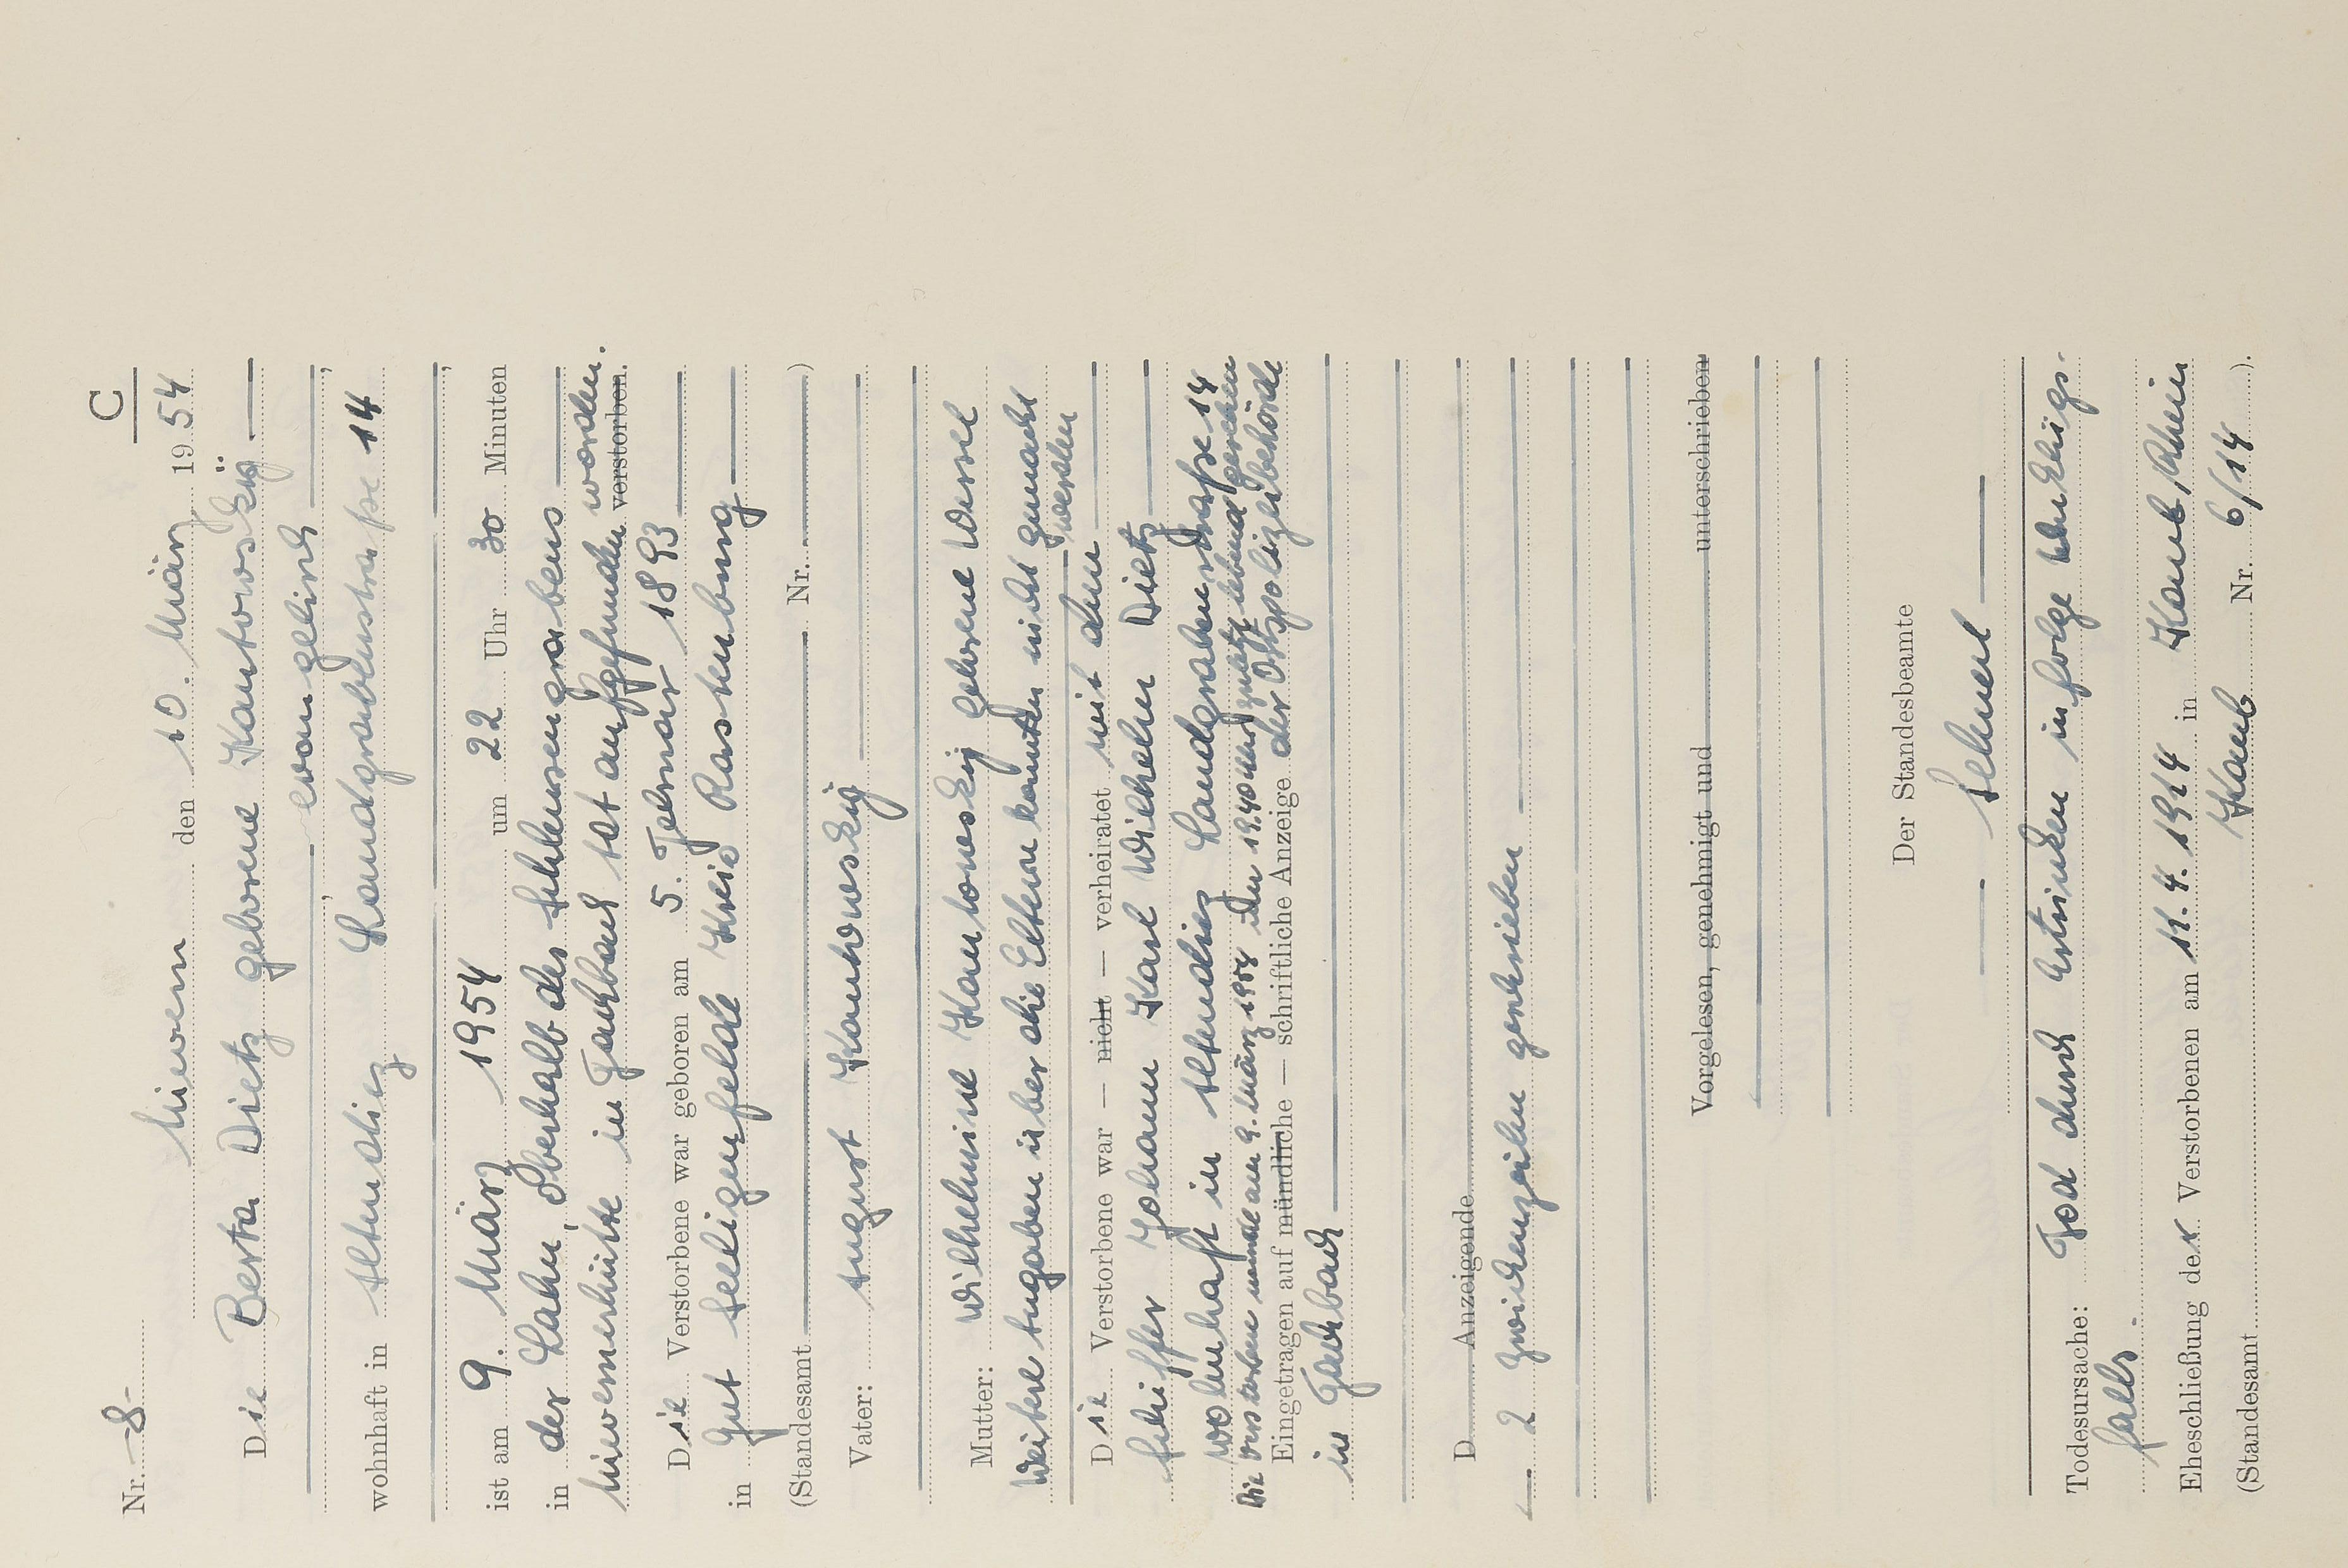 C
Nr. 8
Nievern den 10. März 1954
Die Berta Dietz geborene Kantowskÿ
evangelisch
wohnhaft in Altendiez, Landgrabenstraße 14
ist am 9. März 1954 um 22 Uhr 30 Minuten
in der Lahn, Oberhalb des Schleusengrabens
Nievernerhütte in Fachbach tot aufgefunden worden.
verstorben.
Die Verstorbene war geboren am 5. Februar 1893
in Gut Seeligenfelde Kreis Rastenburg
(Standesamt Nr. )
Vater: August Kantowskÿ
Mutter: Wilhelmine Kantowskÿ geborene Wessel
Weitere Angaben über die Eltern konnten nicht gemacht
werden
Die Verstorbene war — nicht — verheiratet mit dem
Schiffer Johann Karl Wilhelm Dietz
wohnhaft in Altendiez Landgrabenstraße 14
Die Verstorbene wurde am 9. März 1954 um 19.40 Uhr zuletzt lebend gesehen
Eingetragen auf mündliche — schriftliche Anzeige der Ortspolizeibehörde
in Fachbach
D Anzeigende
2 Zwischenzeilen geschrieben
Vorgelesen, genehmigt und unterschrieben
Der Standesbeamte
Todesursache: Tod durch Ertrinken infolge Unglücks-
falls.
Eheschließung der Verstorbenen am 11. 4. 1914 in Kaub/Rhein
(Standesamt Kaub Nr. 6/14 ).